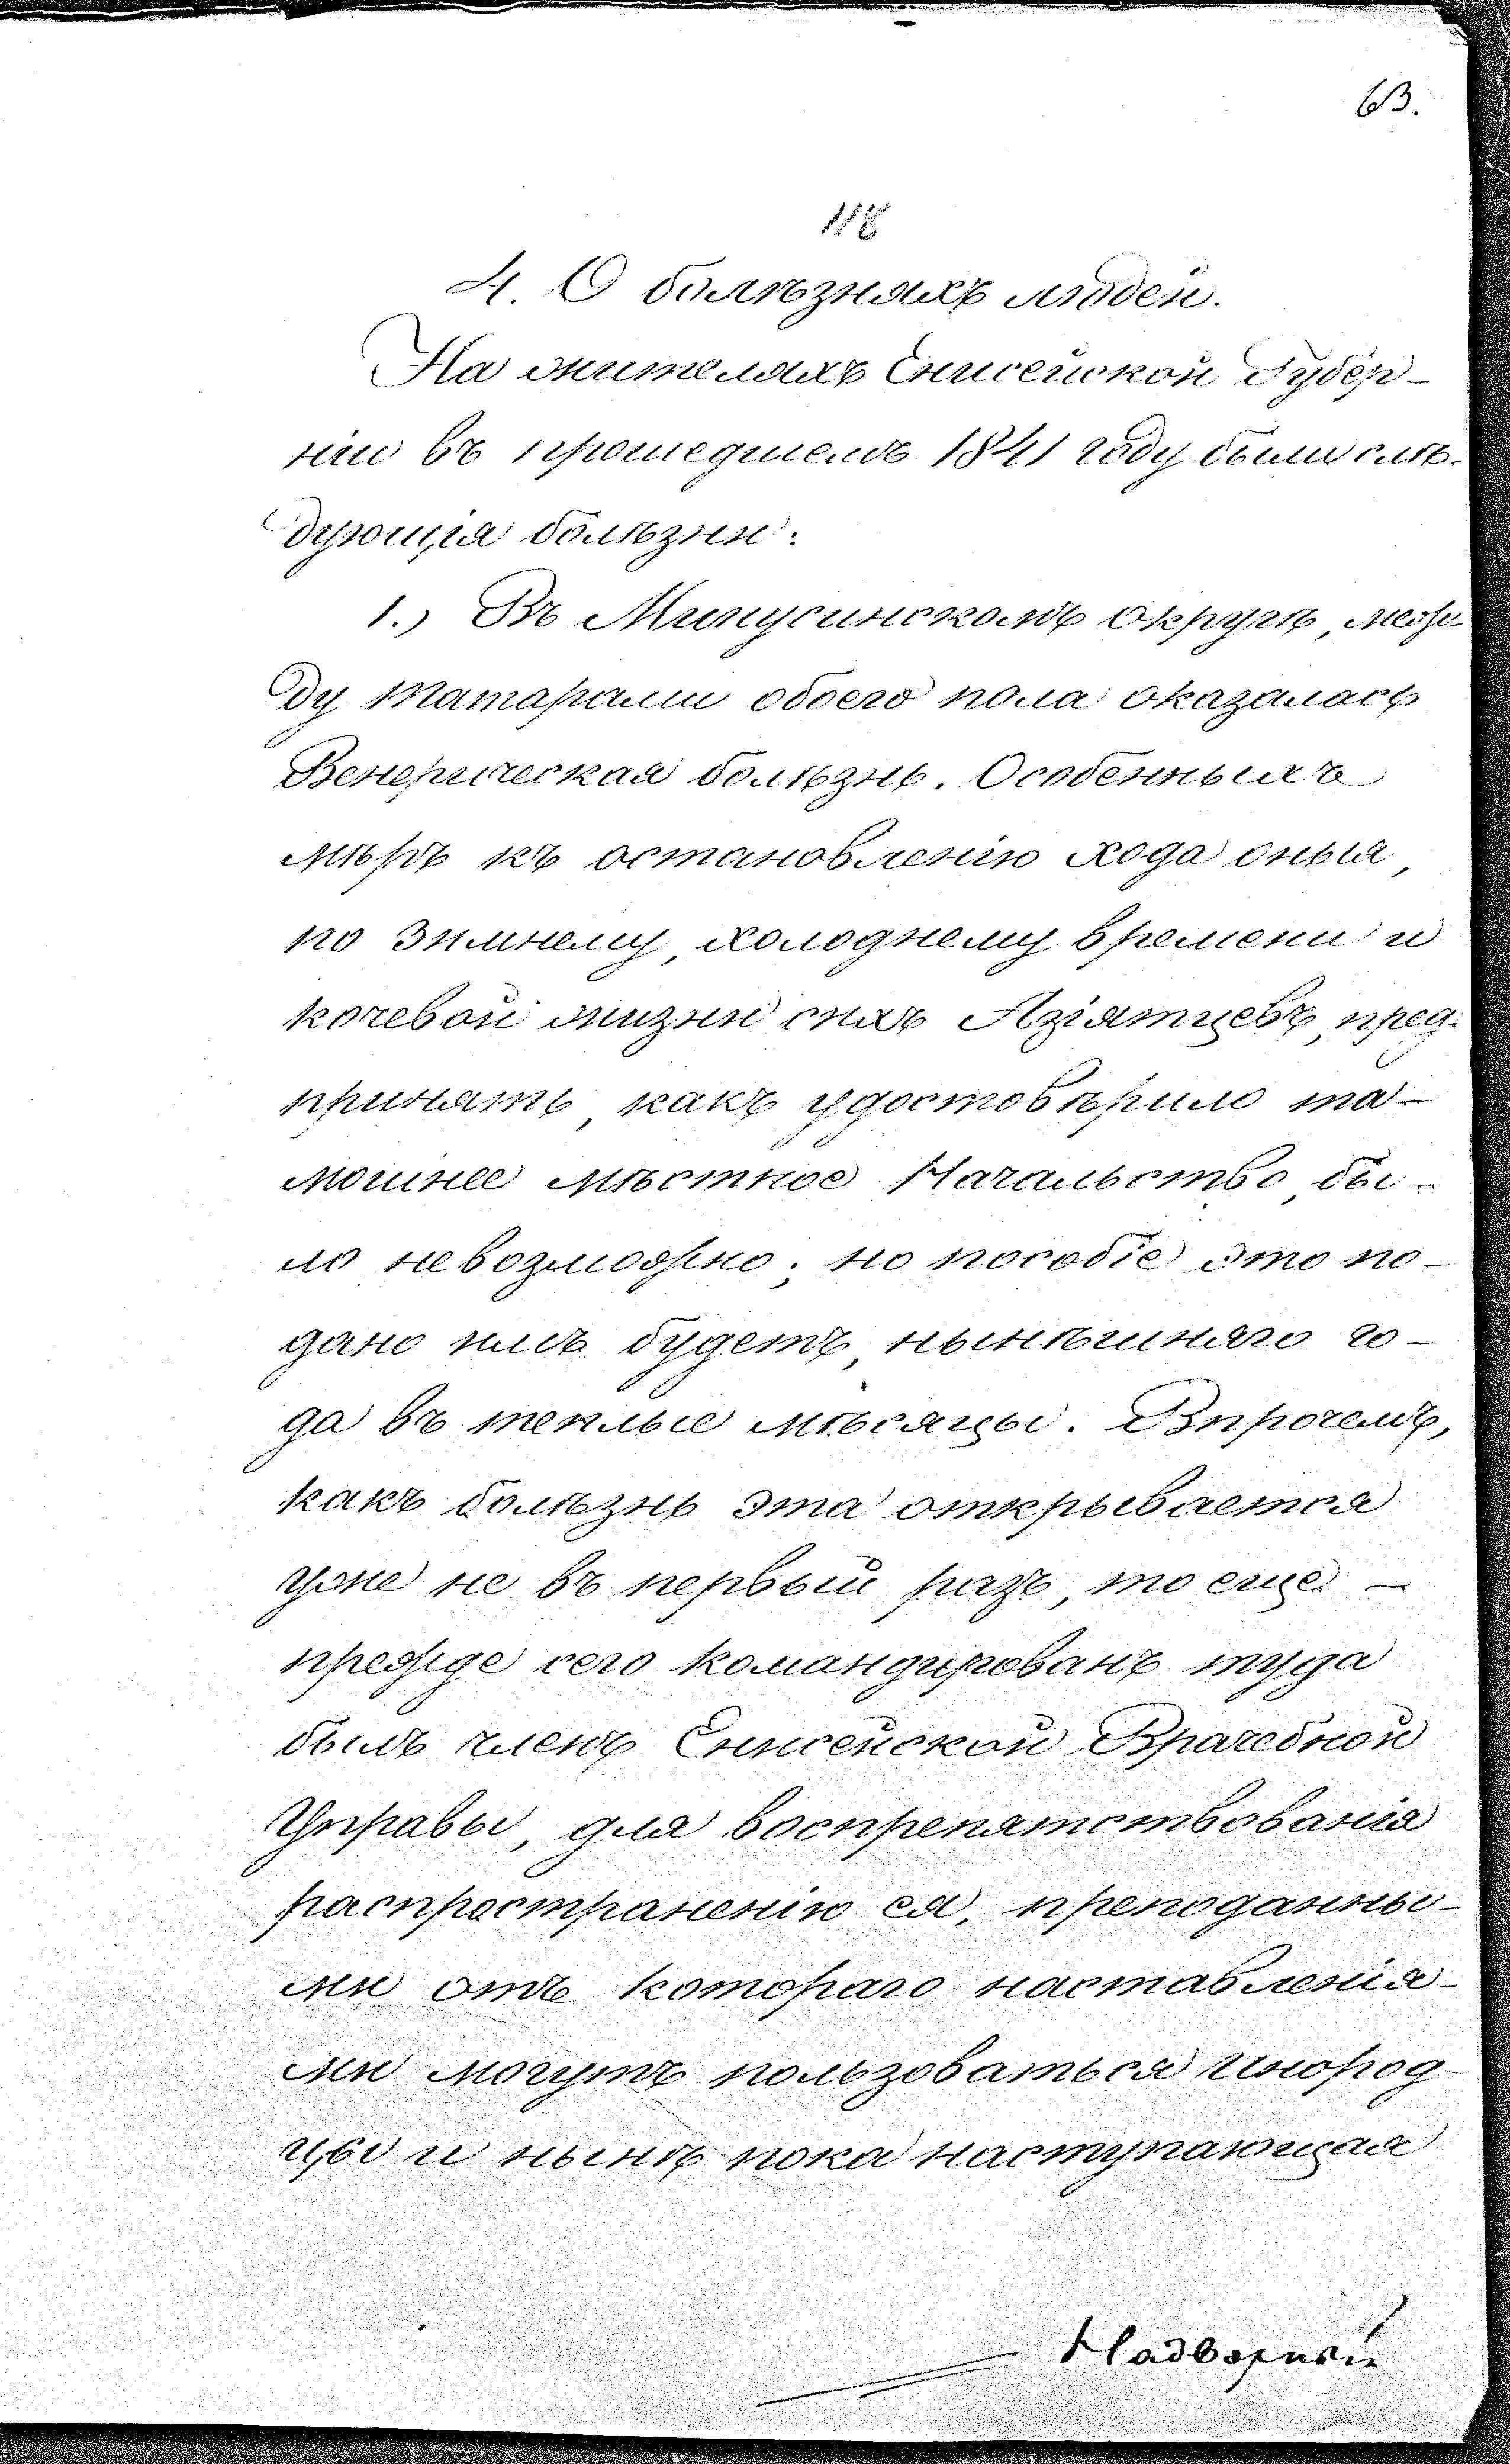 63.
118
4. О болѣзняхъ людей.
На жителяхъ Енисейской Губер-
ніи въ прошедшемъ 1841 году были слѣ-
дующія болѣзни:
1.) Въ Минусинскомъ округѣ, меж-
ду татарами обоего пола оказалась
Венерическая болѣзнь. Особенныхъ
мѣръ къ остановленію хода оныя,
по зимнему, холоднему времени и
кочевой жизни сихъ Азіятцевъ, пред-
принять, какъ удостовѣрило та-
мошнее мѣстное Начальство, бы-
ло невозможно; но пособіе это по-
дано имъ будетъ, нынѣшняго го-
да въ теплые мѣсяцы. Впрочемъ,
какъ болѣзнь эта открывается
уже не въ первый разъ, то еще —
прежде сего командированъ туда
былъ членъ Енисейской Врачебной
Управы, для воспрепятствованія
распространенію ея, преподанны-
ми отъ котораго наставленія-
ми могутъ пользоваться инород-
цы и нынѣ пока наступающая
Надворный